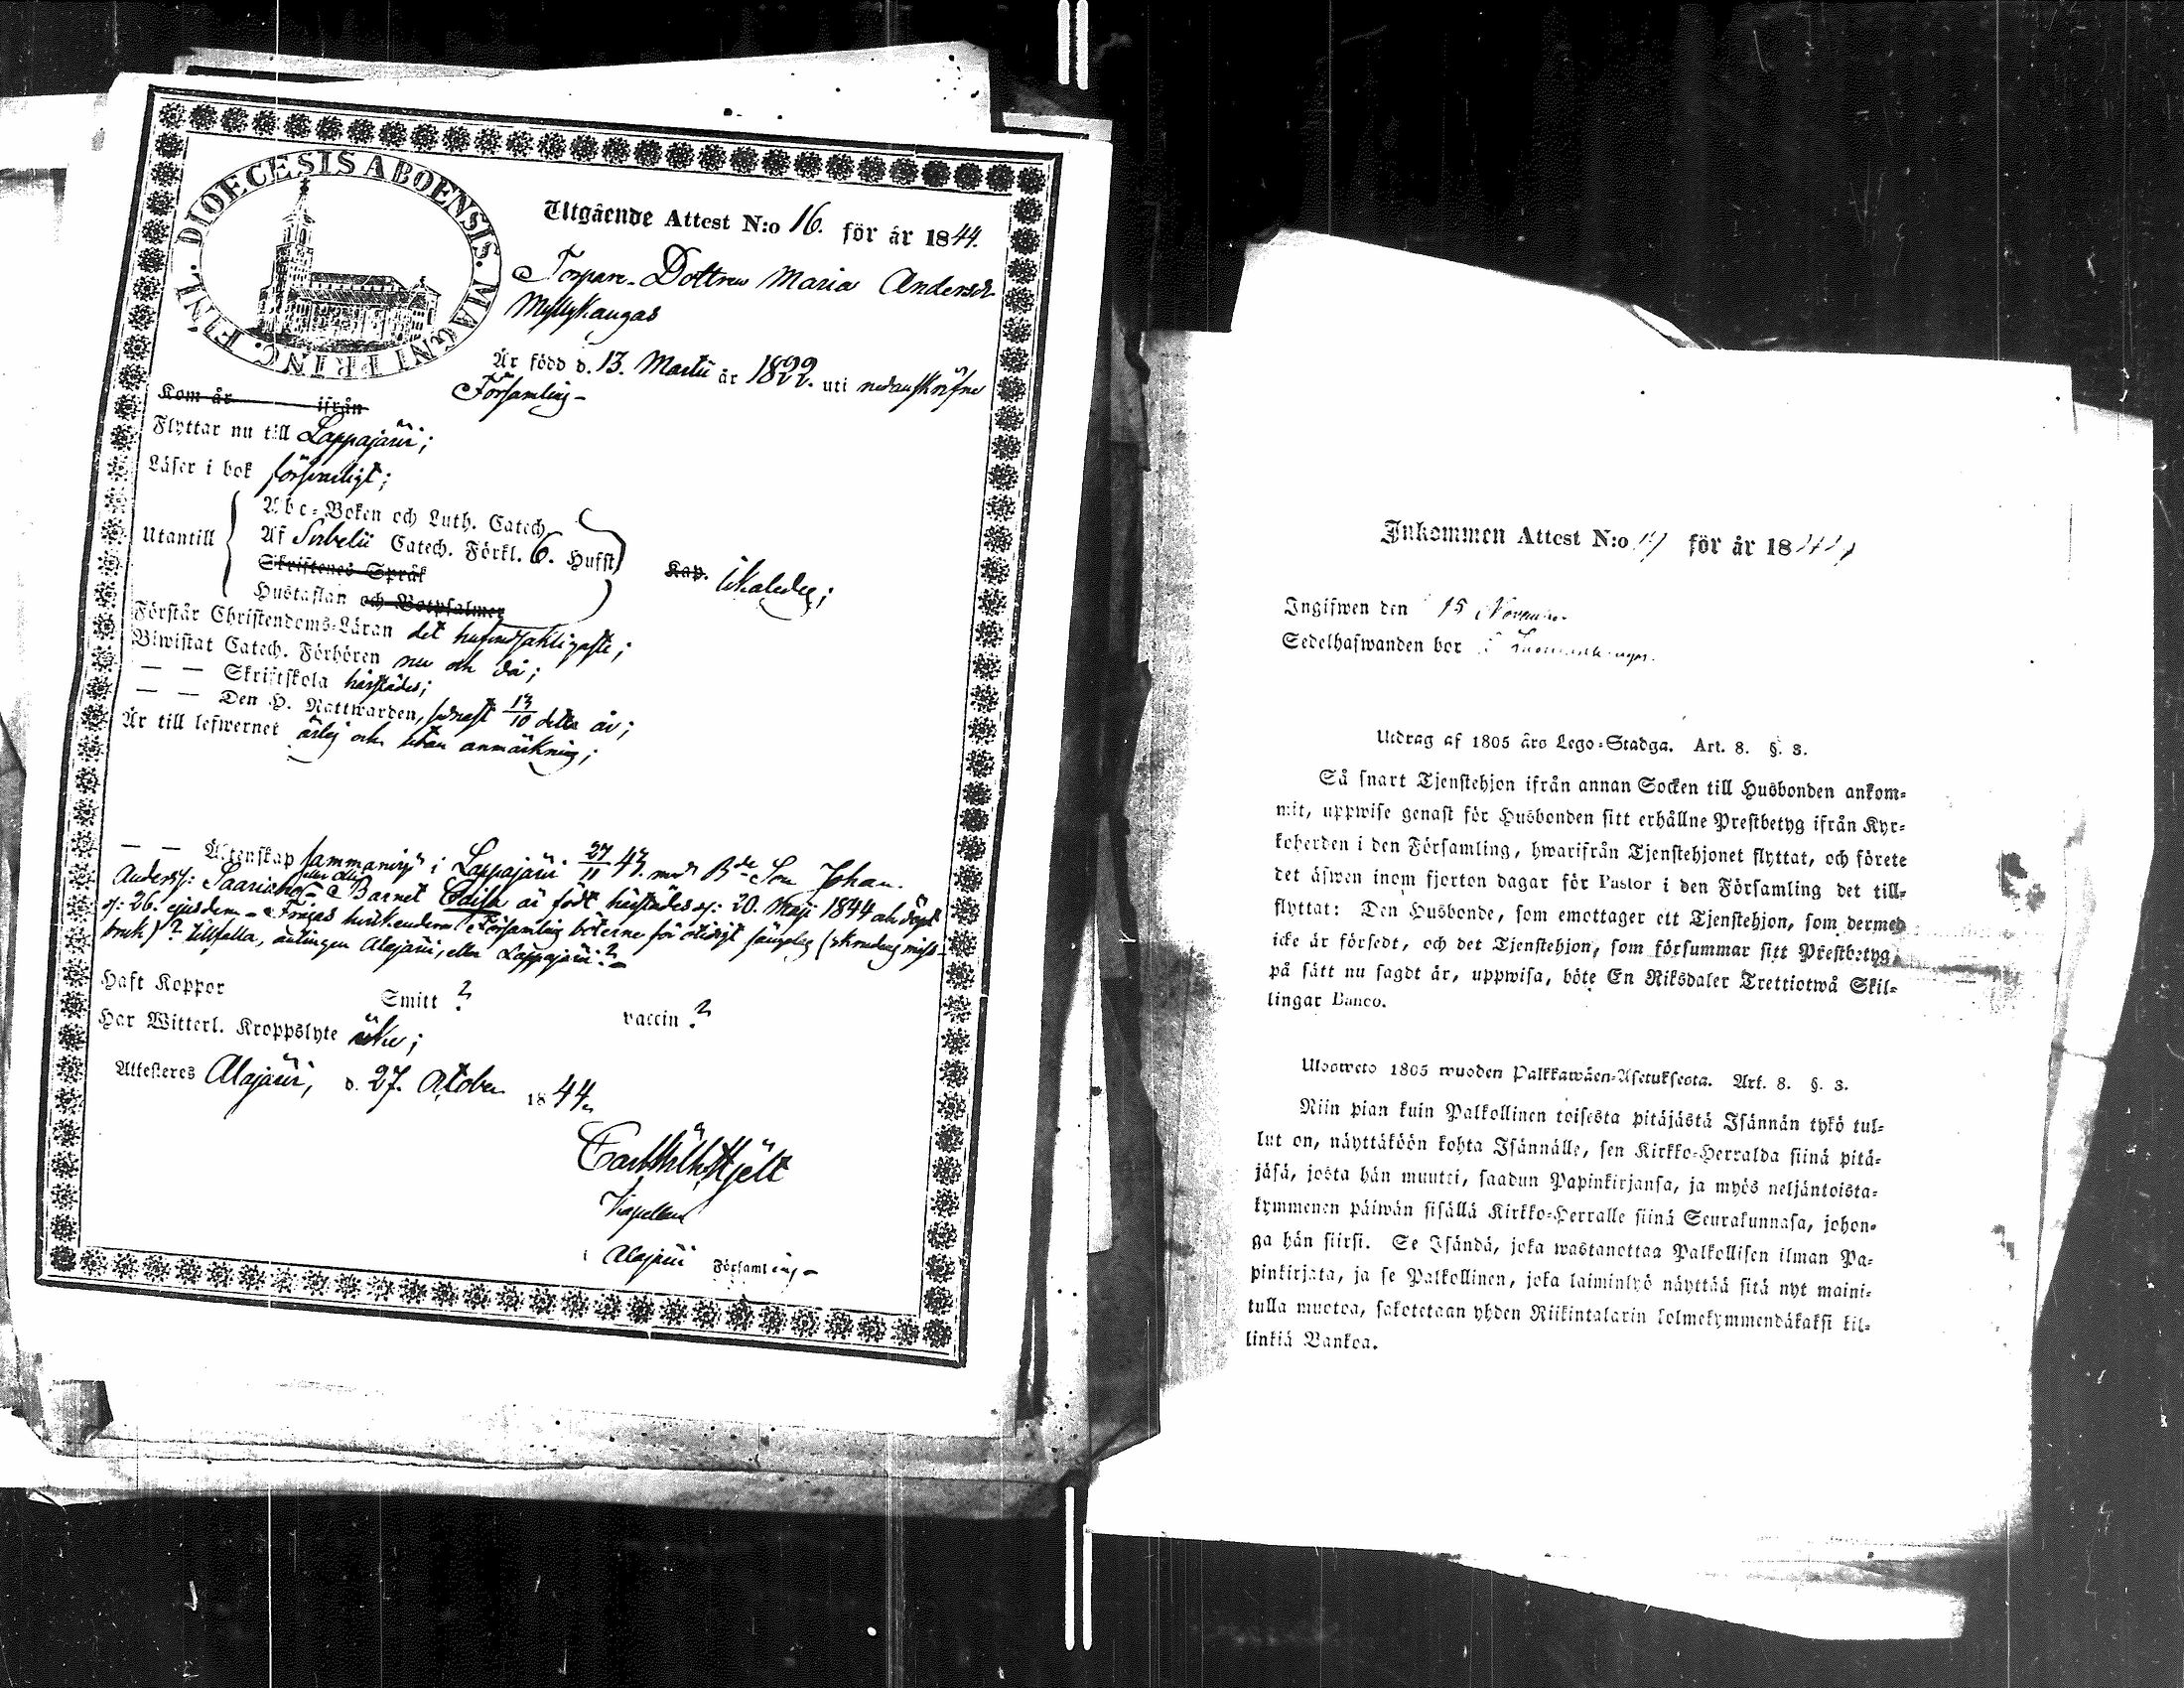 DIOECESIS ABOENSIS. MAGNI PRINC. FINL.
Utgående Attest N:o 16. för år 1844.
Torpare-Dottren Maria Andersdr
Myllykangas
Är född d. 13. Martii år 1822. uti nedanskrifne
Församling-
Kom år ifrån
Flyttar nu till Lappajärvi;
Läser i bok försvarligt;
Utantill
Abc-Boken och Luth. Catech.
Af Sebelii Catech. Förkl. 6. Hufst.
Skriftenes Språk
Kap.
Hustaflan och Botpsalmer
Förstår Christendoms-Läran det hufvudsakligaste;
Biwistat Catech. Förhören nu och då;
— — Skriftskola härstädes;
— — Den H. Nattwarden, senast 13/10 detta år;
Är till lefwernet ärlig och utan anmärkning;
— — Äktenskap sammanvigd i Lappajärvi 27/11 43. med Bde Son Johan
Anders: Saari Barnet är född härstädes d: 20. Maji 1844 och döpt
d: 26. ejusdem - Frågas hvilkendera Församling böterne för otidigt sänglag
bruk)? tillfalla, antingen Alajärvi, eller Lappajärvi?-
Haft Koppor Smitt ? vaccin ?
Har Witterl. Kroppslyte icke;
Attesteres Alajärvi, d. 27. October 1844.
Carl Wilh Hjelt
Kapellan
i Alajärvi Församling-
Inkommen Attest N:o för år 18
Ingifwen den 15 November
Sedelhafwanden bor
Utdrag af 1805 års Lego-Stadga. Art. 8. §. 3.
Så snart Tjenstehjon ifrån annan Socken till Husbonden ankom-
mit, uppwise genast för Husbonden sitt erhållne Prestbetyg ifrån Kyr-
koherden i den Församling, hwarifrån Tjenstehjonet flyttat, och förete
det äfwen inom fjorton dagar för Pastor i den Församling det till-
flyttat: Den Husbonde, som emottager ett Tjenstehjon, som dermed
icke är försedt, och det Tjenstehjon, som försummar sitt Prestbetyg,
på sätt nu sagdt är, uppwisa, böte En Riksdaler Trettiotwå Skil-
lingar Banco.
Ulosweto 1805 wuoden Palkkawäen-Asetuksesta. Art. 8. §. 3.
Niin pian kuin Palkollinen toisesta pitäjästä Isännän tykö tul-
lut on, näyttäköön kohta Isännälle, sen Kirkko-Herralda siinä pitä-
jäsä, josta hän muutti, saadun Papinkirjansa, ja myös neljäntoista-
kymmenen päiwän sisällä Kirkko-Herralle siinä Seurakunnasa, johon-
ga hän siirsi. Se Isändä, joka wastanottaa Palkollisen ilman Pa-
pinkirjata, ja se Palkollinen, joka laiminlyö näyttää sitä nyt maini-
tulla muotoa, sakotetaan yhden Riikintalarin kolmekymmendäkaksi kil-
linkiä Bankoa.